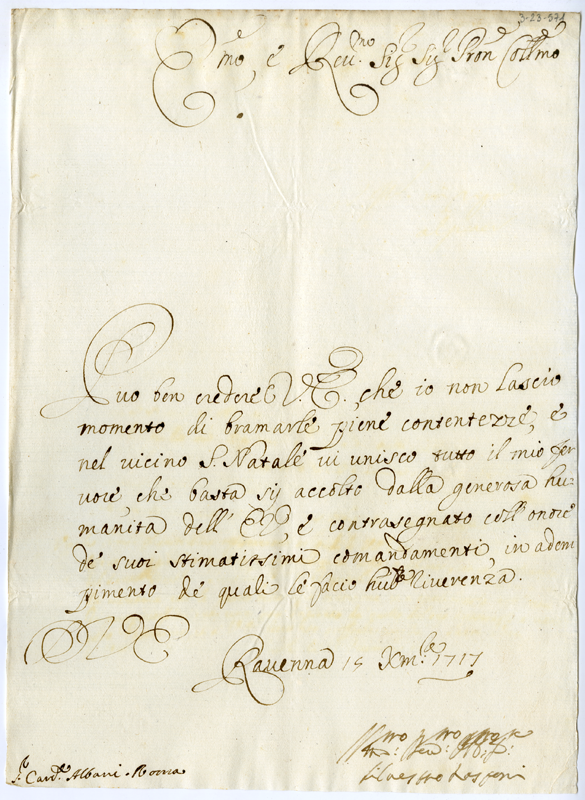 3-23-371
E.mo, e Reu.mo Sig.r Sig.r Pron Coll.mo
Puo ben credere V.E. che io non lascio
momento di bramarle piene contentezze, e
nel vicino S. Natale vi unisco tutto il mio fer
vore, che basta sij accolto dalla generosa hu-
manità dell' E.V., e contrasegnato coll' onore
de suoi stimatissimi comandamenti, in adem
pimento de quali le facio Riverenza.
V E
Ravenna 15 Xm.bre 1717
S.r Card.l Albani. Roma